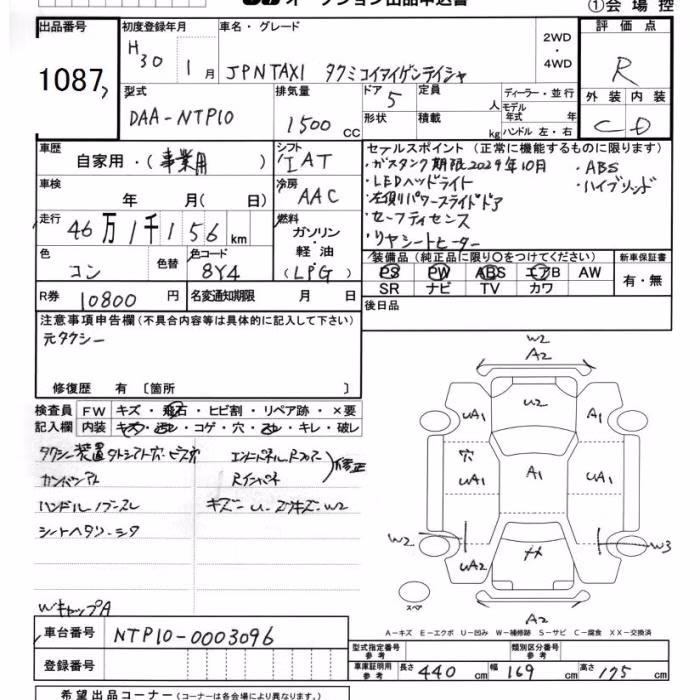 オークション出品申込書
①会場控
出品番号
1087
初度登録年月
H30 1月
車名・グレード
JPN TAXI タクミ
2WD
・
4WD
評価点
R
外装 内装
C D
型式
DAA-NTP10
排気量
1500 cc
ドア
5
定員
人
形状
積載
kg
ディーラー・並行
モデル年式 年
ハンドル 左・右
車歴
自家用・(事業用)
シフト
IAT
車検
年 月(日)
冷房
AAC
走行
46万1千156km
燃料
ガソリン
・
軽油
(LPG)
色
コン
色替
色コード
8Y4
R券
10800円
名変通知期限 月 日
セールスポイント(正常に機能するものに限ります)
・ガスタンク期限2029年10月 ・ABS
・LEDヘッドライト ・ハイブリッド
・左側パワースライドドア
・セーフティセンス
・リヤシートヒーター
装備品(純正品に限り○をつけてください)
PS PW ABS エアB AW
SR ナビ TV カワ
新車保証書
有・無
後日品
注意事項申告欄(不具合内容等は具体的に記入して下さい)
元タクシー
修復歴 有 〔箇所 〕
検査員
記入欄
FW キズ・飛石・ヒビ割・リペア跡・×要
内装 キズ・コゲ・穴・キレ・破レ
W2
A2
U2
UA1 A1
穴
UA1 A1 UA1
W2 W3
UA2
A2
スペア
修正
キズ-U-ヌケキズ-W2
WキャップA
A-キズ E-エクボ U-凹み W-補修跡 S-サビ C-腐食 XX-交換済
車台番号
NTP10-0003096
登録番号
型式指定番号
参考
類別区分番号
参考
車庫証明用
参考
長さ 440 cm 幅 169 cm 高さ 175 cm
希望出品コーナー(コーナーは各会場により異なります。)